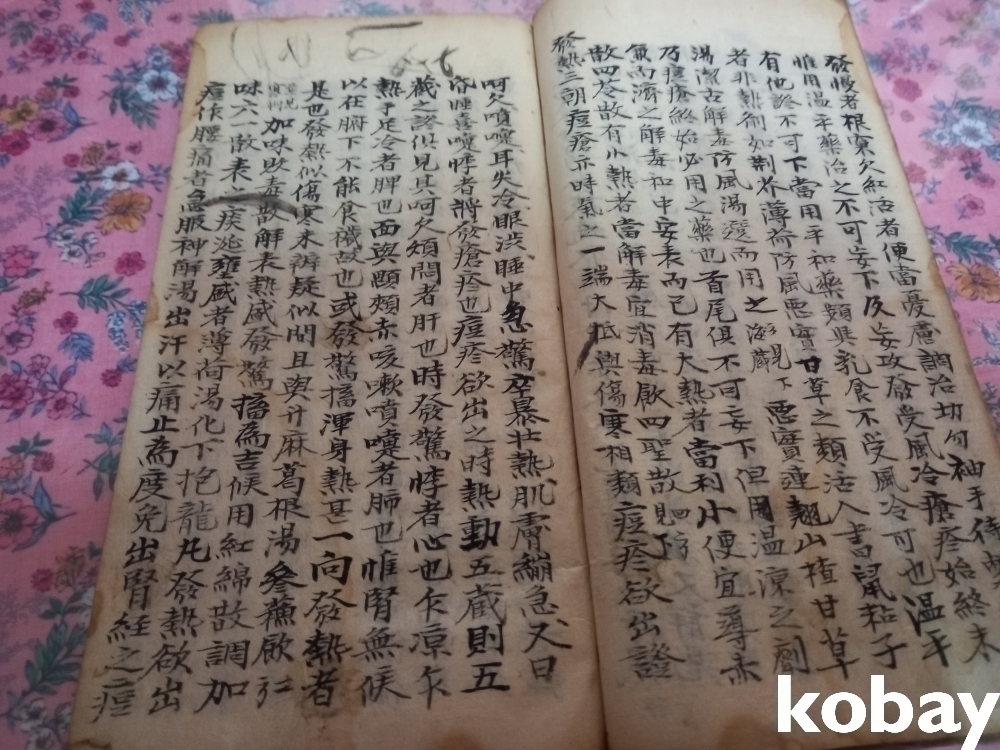 發慢者根窠欠紅活者便當憂慮調治切勿袖手待
惟用溫平藥治之不可妄下及妄攻發受風冷瘡疹始終未
有他證不可下當用平和藥類與乳食不受風冷可也溫平
者非熱劑如荊芥薄荷防風惡實甘草之類活人書鼠粘子
湯潔古解毒防風湯選而用之 見下 惡實連翹山楂甘草
乃痘瘡終始必用之藥也首尾俱不可妄下但用溫凉之劑
兼而濟之解毒和中安表而已有大熱者當利小便宜導赤
散四令散有小熱者當解毒宜消毒飮四聖散見下
發熱三朝痘瘡亦時氣之一端大抵與傷寒相類痘疹欲出證
呵欠噴嚏耳尖冷眼澁睡中急驚卒暴壯熱肌膚繃急又曰
昏睡喜嚔悸者將發瘡疹也痘疹欲出之時熱動五藏則五
藏之證俱見其呵欠煩悶者肝也時發驚悸者心也乍凉乍
熱手足冷者脾也面與顋頰赤咳嗽噴嚏者肺也惟腎無候
以在腑下不能食穢故也或發驚搐渾身熱甚一向發熱者
是也發熱似傷寒未辨疑似間且與升麻葛根湯參蘇飮
加味敗毒散解表熱盛發驚搐爲吉候用紅綿散調加
味六一散表之痰涎壅盛者薄荷湯化下抱龍丸發熱欲出
痘作腰痛者急服神解湯出汗以痛止爲度免出腎經之痘
kobay